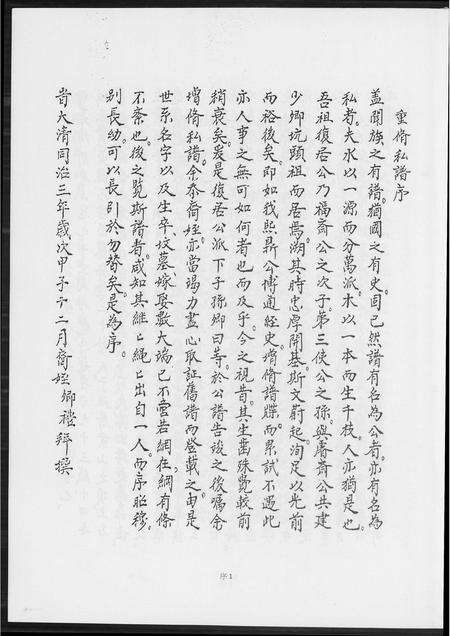 重脩私譜序
蓋聞族之有譜猶國之有史固已然譜有名為公者亦有名為
私者夫水以一源而分萬派木以一本而生千枝人亦猶是也
吾祖復居公乃福裔公之次子第三使公之孫與廇裔公共建
少卿坑頭祖而居焉溯其時忠厚開基斯文蔚起洵足以光前
而裕後矣即如我熙鼎公博通經史增脩譜牒而累試不遇此
亦人事之無可如何者也而及乎今之視昔其生齒殊覺較前
稍衰矣爰是復居公派下子孫卿曰等於公譜告竣之後囑余
增脩私譜余忝裔姪亦當竭力盡心取証舊譜而登載之由是
世系名字以及生卒坟墓嫁娶數大端已不啻若網在綱有條
不紊也後之覽斯譜者咸知其繼〻繩〻出自一人而序昭穆
別長幼可以長引於勿替矣是為序
旹大清同治三年歲次甲子十二月裔姪鄉禮拜撰
序1